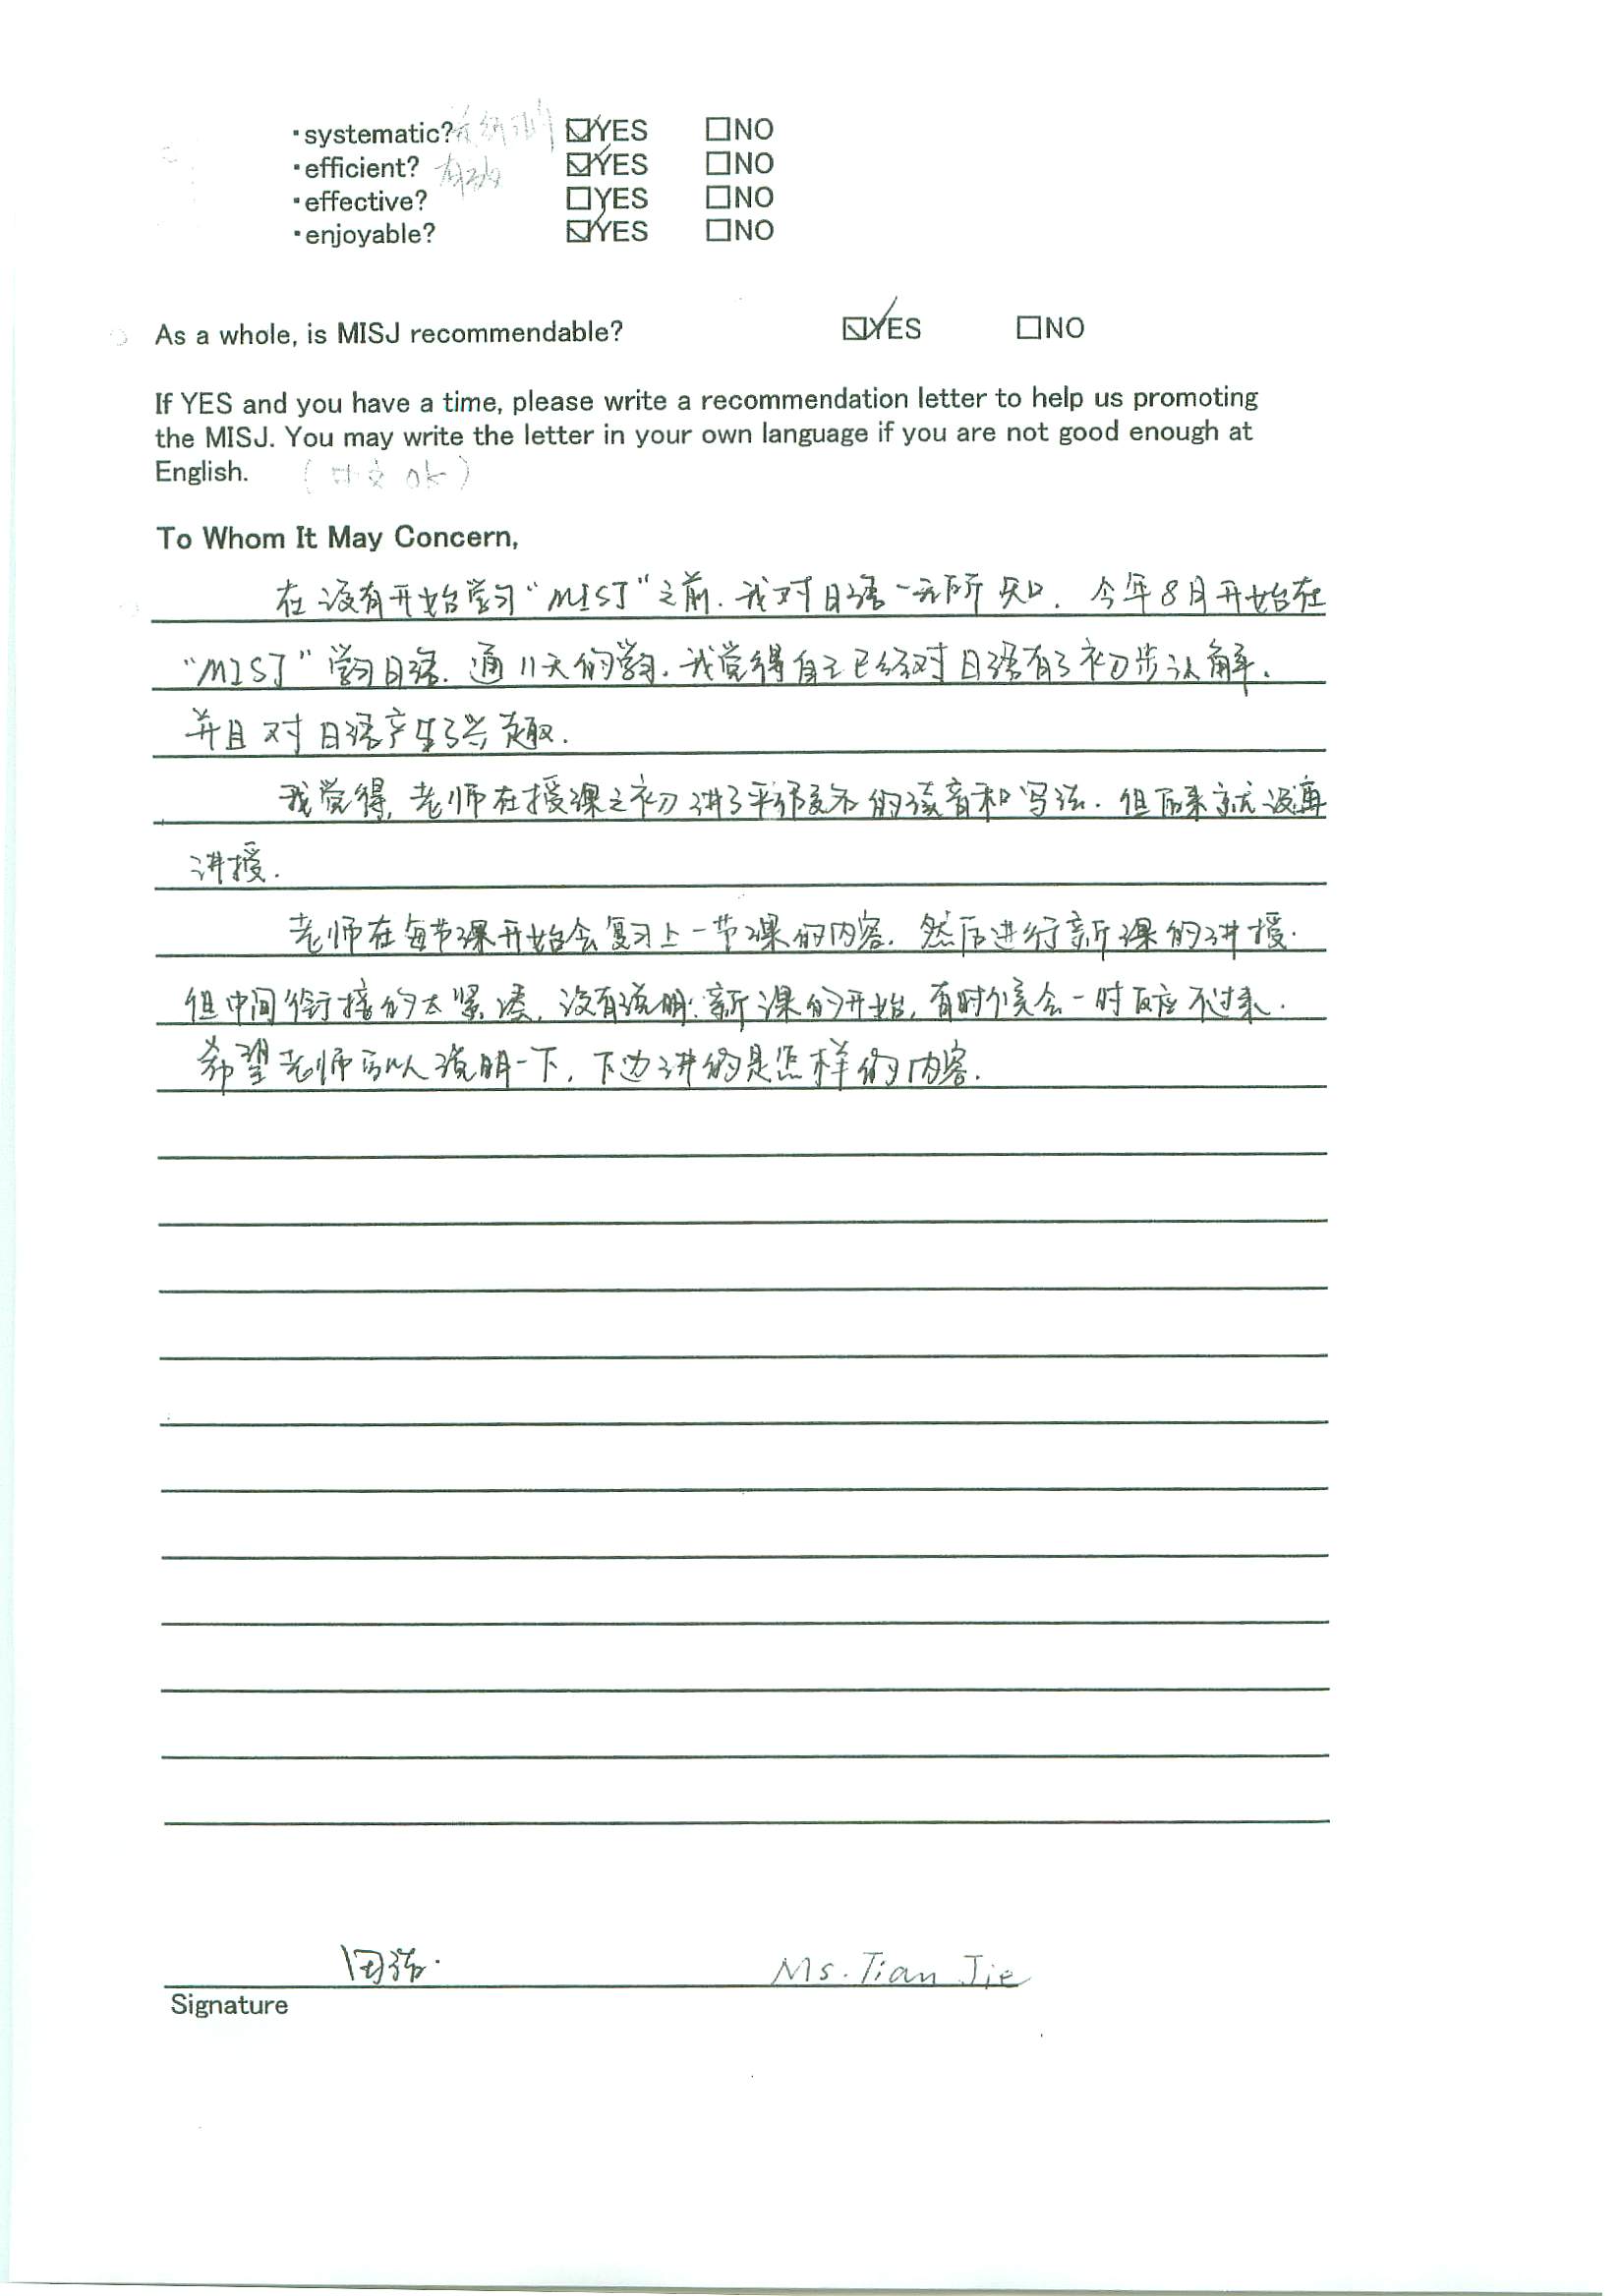 ・systematic? ☑YES ☐NO
・efficient? 有效 ☑YES ☐NO
・effective? ☐YES ☐NO
・enjoyable? ☑YES ☐NO
As a whole, is MISJ recommendable? ☑YES ☐NO
If YES and you have a time, please write a recommendation letter to help us promoting
the MISJ. You may write the letter in your own language if you are not good enough at
English. (中文 ok)
To Whom It May Concern,
在没有开始学习“MISJ”之前.我对日语一无所知. 今年8月开始在
“MISJ”学习日语.通11天的学习.我觉得自己已经对日语有了初步认解.
并且对日语产生了兴趣.
我觉得,老师在授课之初讲了平假名的读音和写法.但后来就没再
讲授.
老师在每节课开始会复习上一节课的内容.然后进行新课的讲授.
但中间衔接的太紧凑,没有说明:新课的开始,有时候会一时反应不过来.
希望老师可以说明一下,下边讲的是怎样的内容.
田 Ms. Tian Jie
Signature